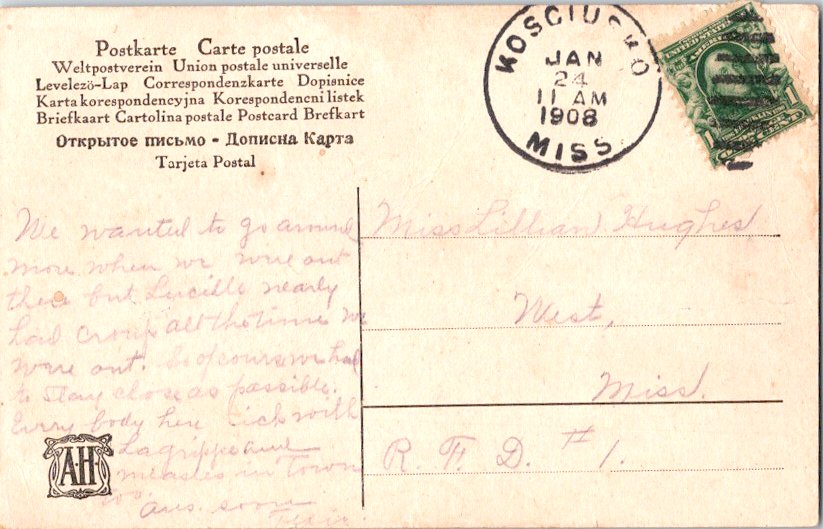 Postkarte Carte postale
Weltpostverein Union postale universelle
Levelezö-Lap Correspondenzkarte Dopisnice
Karta korespondencyjna Korespondencni listek
Briefkaart Cartolina postale Postcard Brefkart
Открытое письмо - Дописна Карта
Tarjeta Postal
KOSCIUSKO
JAN
24
11 AM
1908
MISS.
We wanted to go around
more when we were out
there but Lucille nearly
had croup all the time we
were out. So of course we had
to stay close as possible.
Every body here sick with
Lagrippe and
measles in town
too.
Ans. soon
Miss Lillian Hughes,
West,
Miss.
R. F. D. #1.
A·H
1
1